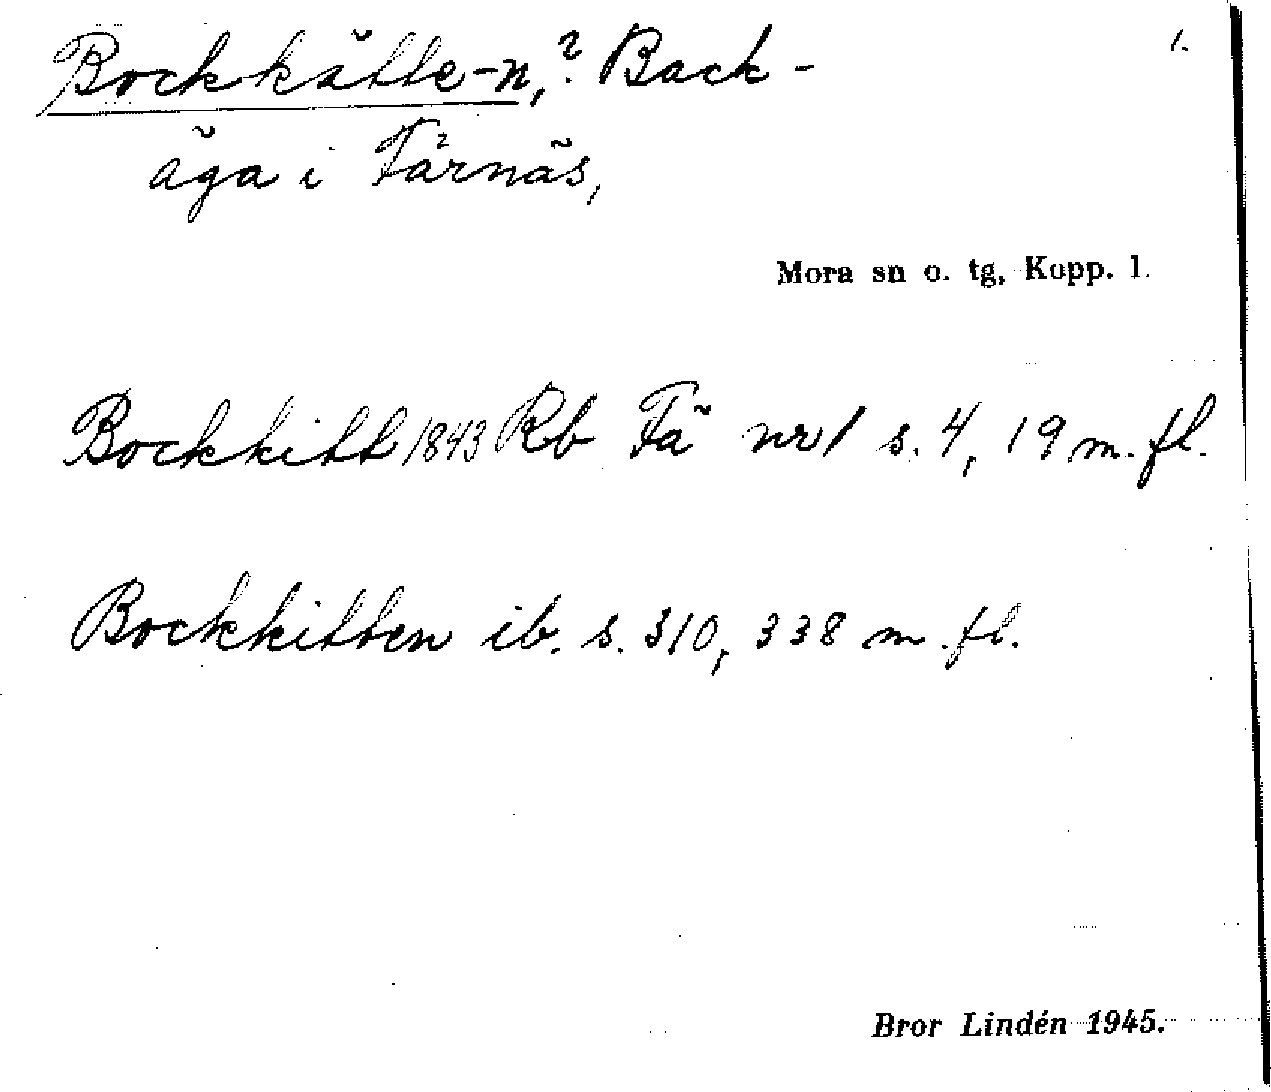 Bockkätte-n,? Back- 1.
äga i Färnäs,
Mora sn o. tg, Kopp. l.
Bockkitt 1843 Rb Fä nr 1 s. 4, 19 m. fl.
Bockkitten ib. s. 310, 338 m. fl.
Bror Lindén 1945.